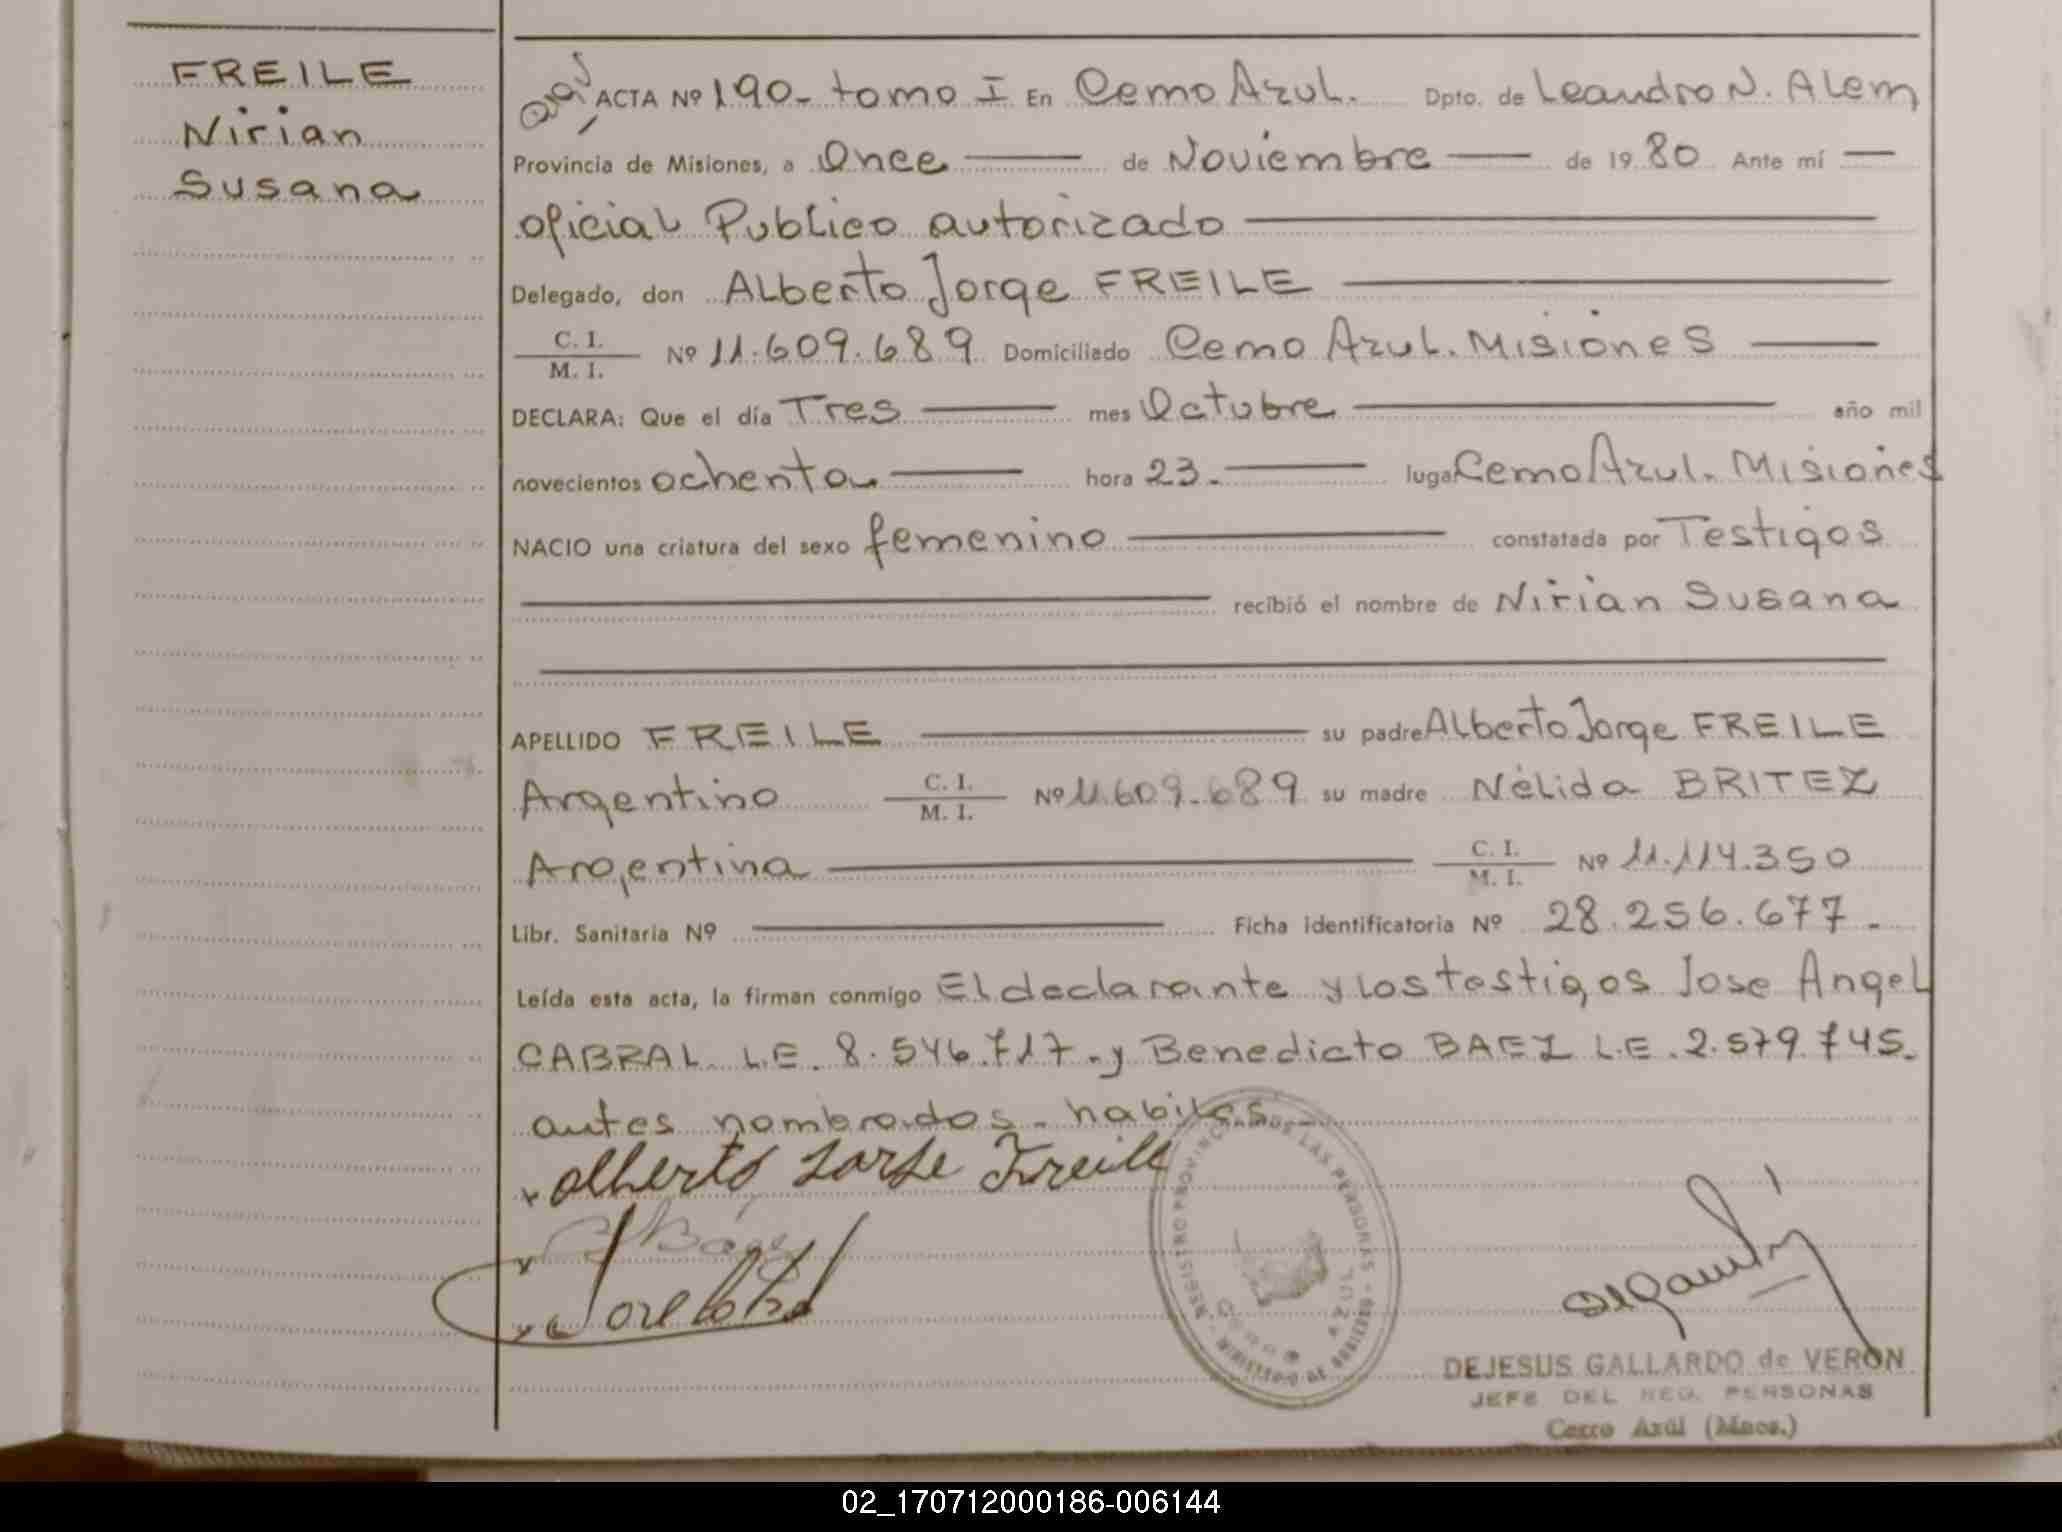 FREILE
Nirian
Susana
ACTA Nº 190- tomo I En Cerro Azul. Dpto. de Leandro N. Alem
Provincia de Misiones, a Once de Noviembre de 1980 Ante mí
oficial Publico autorizado
Delegado, don Alberto Jorge FREILE
C. I.
M. I.
Nº 11.609.689 Domiciliado Cerro Azul. Misiones
DECLARA: Que el día Tres mes Octubre año mil
novecientos ochenta hora 23. lugar Cerro Azul. Misiones
NACIO una criatura del sexo femenino constatada por Testigos
recibió el nombre de Nirian Susana
APELLIDO FREILE su padre Alberto Jorge FREILE
Argentino C. I. M. I. Nº 11.609.689 su madre Nélida BRITEZ
Argentina C. I. M. I. Nº 11.114.350
Libr. Sanitaria Nº Ficha identificatoria Nº 28.256.677.-
Leída esta acta, la firman conmigo El declarante y los testigos Jose Angel
CABRAL L.E. 8.546.717.- y Benedicto BAEZ L.E. 2.579.745.
antes nombrados. habiles.
Alberto Jorge Freile
B Báez
REGISTRO PROVINCIAL DE LAS PERSONAS - MINISTERIO DE GOBIERNO -
AZUL
DEJESUS GALLARDO de VERON
JEFE DEL REG. PERSONAS
Cerro Azúl (Mnes.)
02_170712000186-006144